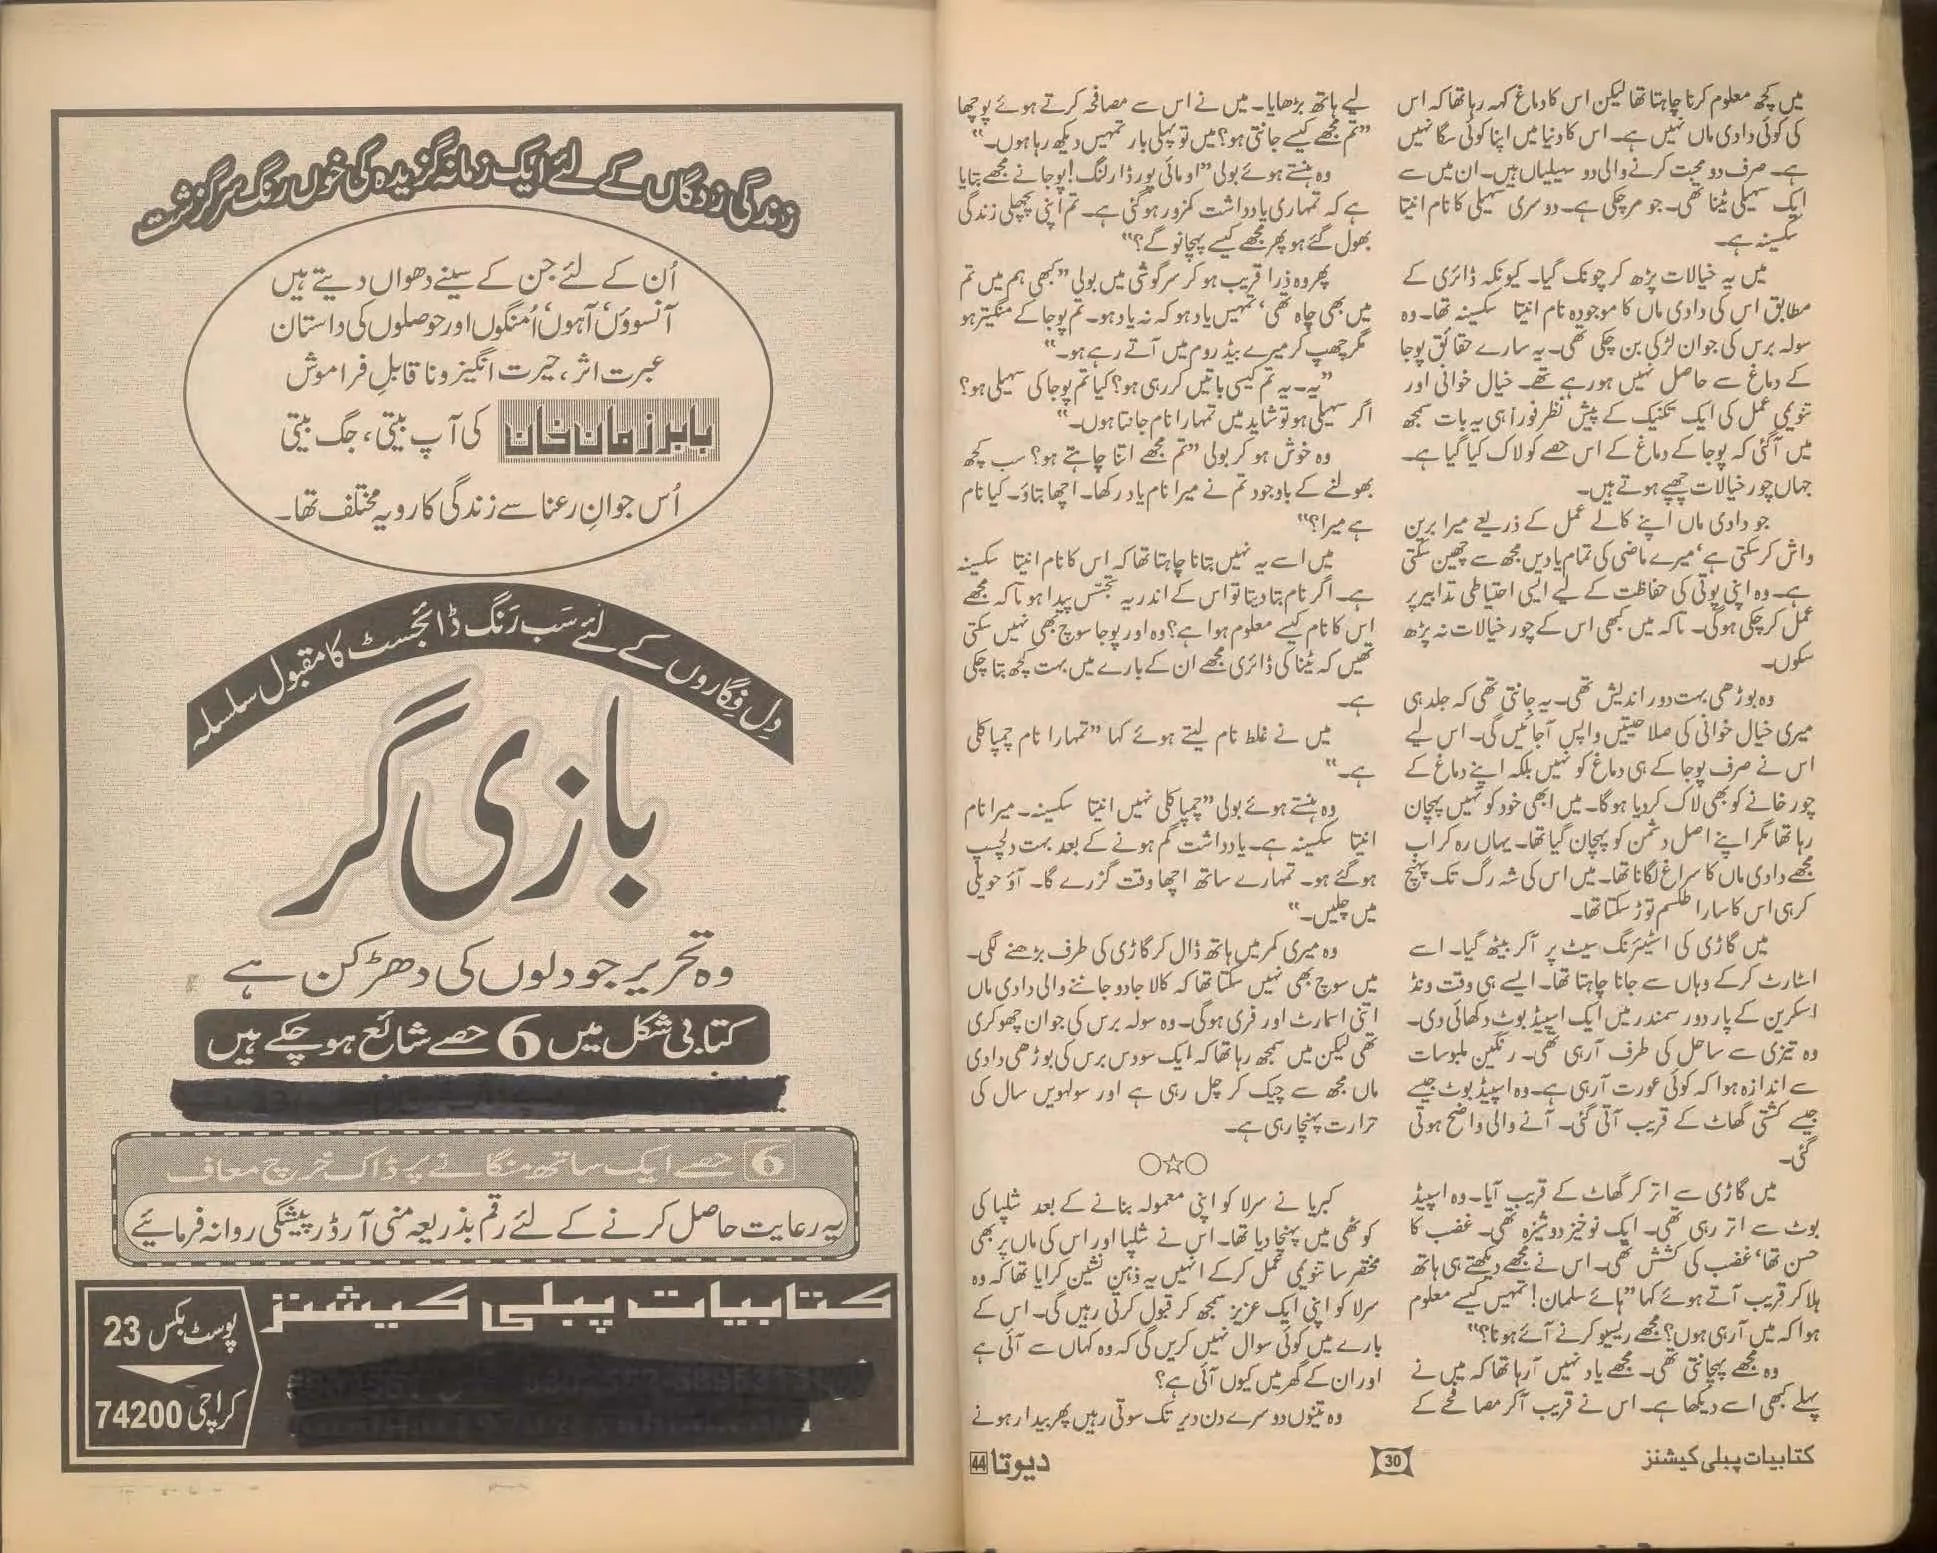 میں کچھ معلوم کرنا چاہتا تھا لیکن اس کا دماغ کہہ رہا تھا کہ اس
کی کوئی دادی ماں نہیں ہے۔ اس کا دنیا میں اپنا کوئی سگا نہیں
ہے۔ صرف دو محبت کرنے والی دو سہیلیاں ہیں۔ ان میں سے
ایک سہیلی ٹینا تھی۔ جو مرچکی ہے۔ دوسری سہیلی کا نام انیتا
سکسینہ ہے۔
میں یہ خیالات پڑھ کر چونک گیا۔ کیونکہ ڈائری کے
مطابق اس کی دادی ماں کا موجودہ نام انیتا سکسینہ تھا۔ وہ
سولہ برس کی جوان لڑکی بن چکی تھی۔ یہ سارے حقائق پوجا
کے دماغ سے حاصل نہیں ہو رہے تھے۔ خیال خوانی اور
تنویمی عمل کی ایک تکنیک کے پیش نظر فوراً ہی یہ بات سمجھ
میں آگئی کہ پوجا کے دماغ کے اس حصے کو لاک کیا گیا ہے۔
جہاں چور خیالات چھپے ہوتے ہیں۔
جو دادی ماں اپنے کالے عمل کے ذریعے میرا برین
واش کر سکتی ہے‘ میرے ماضی کی تمام یادیں مجھ سے چھین سکتی
ہے۔ وہ اپنی پوتی کی حفاظت کے لیے ایسی احتیاطی تدابیر پر
عمل کر چکی ہوگی۔ تاکہ میں کبھی اس کے چور خیالات نہ پڑھ
سکوں۔
وہ بوڑھی بہت دور اندیش تھی۔ یہ جانتی تھی کہ جلد ہی
میری خیال خوانی کی صلاحیتیں واپس آجائیں گی۔ اس لیے
اس نے صرف پوجا کے ہی دماغ کو نہیں بلکہ اپنے دماغ کے
چور خانے کو بھی لاک کر دیا ہوگا۔ میں ابھی خود کو نہیں پہچان
رہا تھا مگر اپنے اصل دشمن کو پہچان گیا تھا۔ یہاں رہ کر اب
مجھے دادی ماں کا سراغ لگانا تھا۔ میں اس کی شہ رگ تک پہنچ
کر ہی اس کا سارا طلسم توڑ سکتا تھا۔
میں گاڑی کی اسٹیئرنگ سیٹ پر آکر بیٹھ گیا۔ اسے
اسٹارٹ کرکے وہاں سے جانا چاہتا تھا۔ ایسے ہی وقت ونڈ
اسکرین کے پار دور سمندر میں ایک اسپیڈ بوٹ دکھائی دی۔
وہ تیزی سے ساحل کی طرف آرہی تھی۔ رنگین ملبوسات
سے اندازہ ہوا کہ کوئی عورت آرہی ہے۔ وہ اسپیڈ بوٹ جیسے
جیسے کشتی گھاٹ کے قریب آتی گئی۔ آنے والی واضح ہوتی
گئی۔
میں گاڑی سے اتر کر گھاٹ کے قریب آیا۔ وہ اسپیڈ
بوٹ سے اتر رہی تھی۔ ایک نوخیز دوشیزہ تھی۔ غضب کا
حسن تھا‘ غضب کی کشش تھی۔ اس نے مجھے دیکھتے ہی ہاتھ
ہلا کر قریب آتے ہوئے کہا ”ہائے سلمان! تمہیں کیسے معلوم
ہوا کہ میں آرہی ہوں؟ مجھے ریسیو کرنے آئے ہو نا؟“
وہ مجھے پہچانتی تھی۔ مجھے یاد نہیں آرہا تھا کہ میں نے
پہلے کبھی اسے دیکھا ہے۔ اس نے قریب آکر مصافحے کے
لیے ہاتھ بڑھایا۔ میں نے اس سے مصافحہ کرتے ہوئے پوچھا
”تم مجھے کیسے جانتی ہو؟ میں تو پہلی بار تمہیں دیکھ رہا ہوں۔“
وہ ہنستے ہوئے بولی ”او مائی پور ڈارلنگ! پوجا نے مجھے بتایا
ہے کہ تمہاری یادداشت کمزور ہوگئی ہے۔ تم اپنی پچھلی زندگی
بھول گئے ہو پھر مجھے کیسے پہچانو گے؟“
پھر وہ ذرا قریب ہو کر سرگوشی میں بولی ”کبھی ہم میں تم
میں بھی چاہ تھی‘ تمہیں یاد ہو کہ نہ یاد ہو۔ تم پوجا کے منگیتر ہو
مگر چھپ کر میرے بیڈ روم میں آتے رہے ہو۔“
”یہ۔ یہ تم کیسی باتیں کر رہی ہو؟ کیا تم پوجا کی سہیلی ہو؟
اگر سہیلی ہو تو شاید میں تمہارا نام جانتا ہوں۔“
وہ خوش ہو کر بولی ”تم مجھے اتنا چاہتے ہو؟ سب کچھ
بھولنے کے باوجود تم نے میرا نام یاد رکھا۔ اچھا بتاؤ۔ کیا نام
ہے میرا؟“
میں اسے یہ نہیں بتانا چاہتا تھا کہ اس کا نام انیتا سکسینہ
ہے۔ اگر نام بتا دیتا تو اس کے اندر یہ تجسّس پیدا ہو تا کہ مجھے
اس کا نام کیسے معلوم ہوا ہے؟ وہ اور پوجا سوچ بھی نہیں سکتی
تھیں کہ ٹینا کی ڈائری مجھے ان کے بارے میں بہت کچھ بتا چکی
ہے۔
میں نے غلط نام لیتے ہوئے کہا ”تمہارا نام چمپا کلی
ہے۔“
وہ ہنستے ہوئے بولی ”چمپا کلی نہیں انیتا سکسینہ۔ میرا نام
انیتا سکسینہ ہے۔ یادداشت گم ہونے کے بعد بہت دلچسپ
ہوگئے ہو۔ تمہارے ساتھ اچھا وقت گزرے گا۔ آؤ حویلی
میں چلیں۔“
وہ میری کمر میں ہاتھ ڈال کر گاڑی کی طرف بڑھنے لگی۔
میں سوچ بھی نہیں سکتا تھا کہ کالا جادو جاننے والی دادی ماں
اتنی اسمارٹ اور فری ہوگی۔ وہ سولہ برس کی جوان چھوکری
تھی لیکن میں سمجھ رہا تھا کہ ایک سو دس برس کی بوڑھی دادی
ماں مجھ سے چپک کر چل رہی ہے اور سولہویں سال کی
حرارت پہنچا رہی ہے۔
○☆○
کبریا نے سرلا کو اپنی معمولہ بنانے کے بعد شلپا کی
کوٹھی میں پہنچا دیا تھا۔ اس نے شلپا اور اس کی ماں پر بھی
مختصر سا تنویمی عمل کرکے انہیں یہ ذہن نشین کرایا تھا کہ وہ
سرلا کو اپنی ایک عزیز سمجھ کر قبول کرتی رہیں گی۔ اس کے
بارے میں کوئی سوال نہیں کریں گی کہ وہ کہاں سے آئی ہے
اور ان کے گھر میں کیوں آئی ہے؟
وہ تینوں دوسرے دن دیر تک سوتی رہیں پھر بیدار ہونے
کتابیات پبلی کیشنز
30
دیوتا 44
زندگی زدگاں کے لئے ایک زمانہ گزیدہ کی خوں رنگ سرگزشت
اُن کے لئے جن کے سینے دھواں دیتے ہیں
آنسوؤں‘ آہوں‘ اُمنگوں اور حوصلوں کی داستان
عبرت اثر، حیرت انگیز و ناقابلِ فراموش
بابر زمان خان کی آپ بیتی، جگ بیتی
اُس جوانِ رعنا سے زندگی کا رویہ مختلف تھا۔
دل فگاروں کے لئے سب رنگ ڈائجسٹ کا مقبول سلسلہ
بازی گر
وہ تحریر جو دلوں کی دھڑکن ہے
کتابی شکل میں 6 حصے شائع ہو چکے ہیں
6 حصے ایک ساتھ منگانے پر ڈاک خرچ معاف
یہ رعایت حاصل کرنے کے لئے رقم بذریعہ منی آرڈر پیشگی روانہ فرمائیے
کتابیات پبلی کیشنز
پوسٹ بکس 23
کراچی 74200